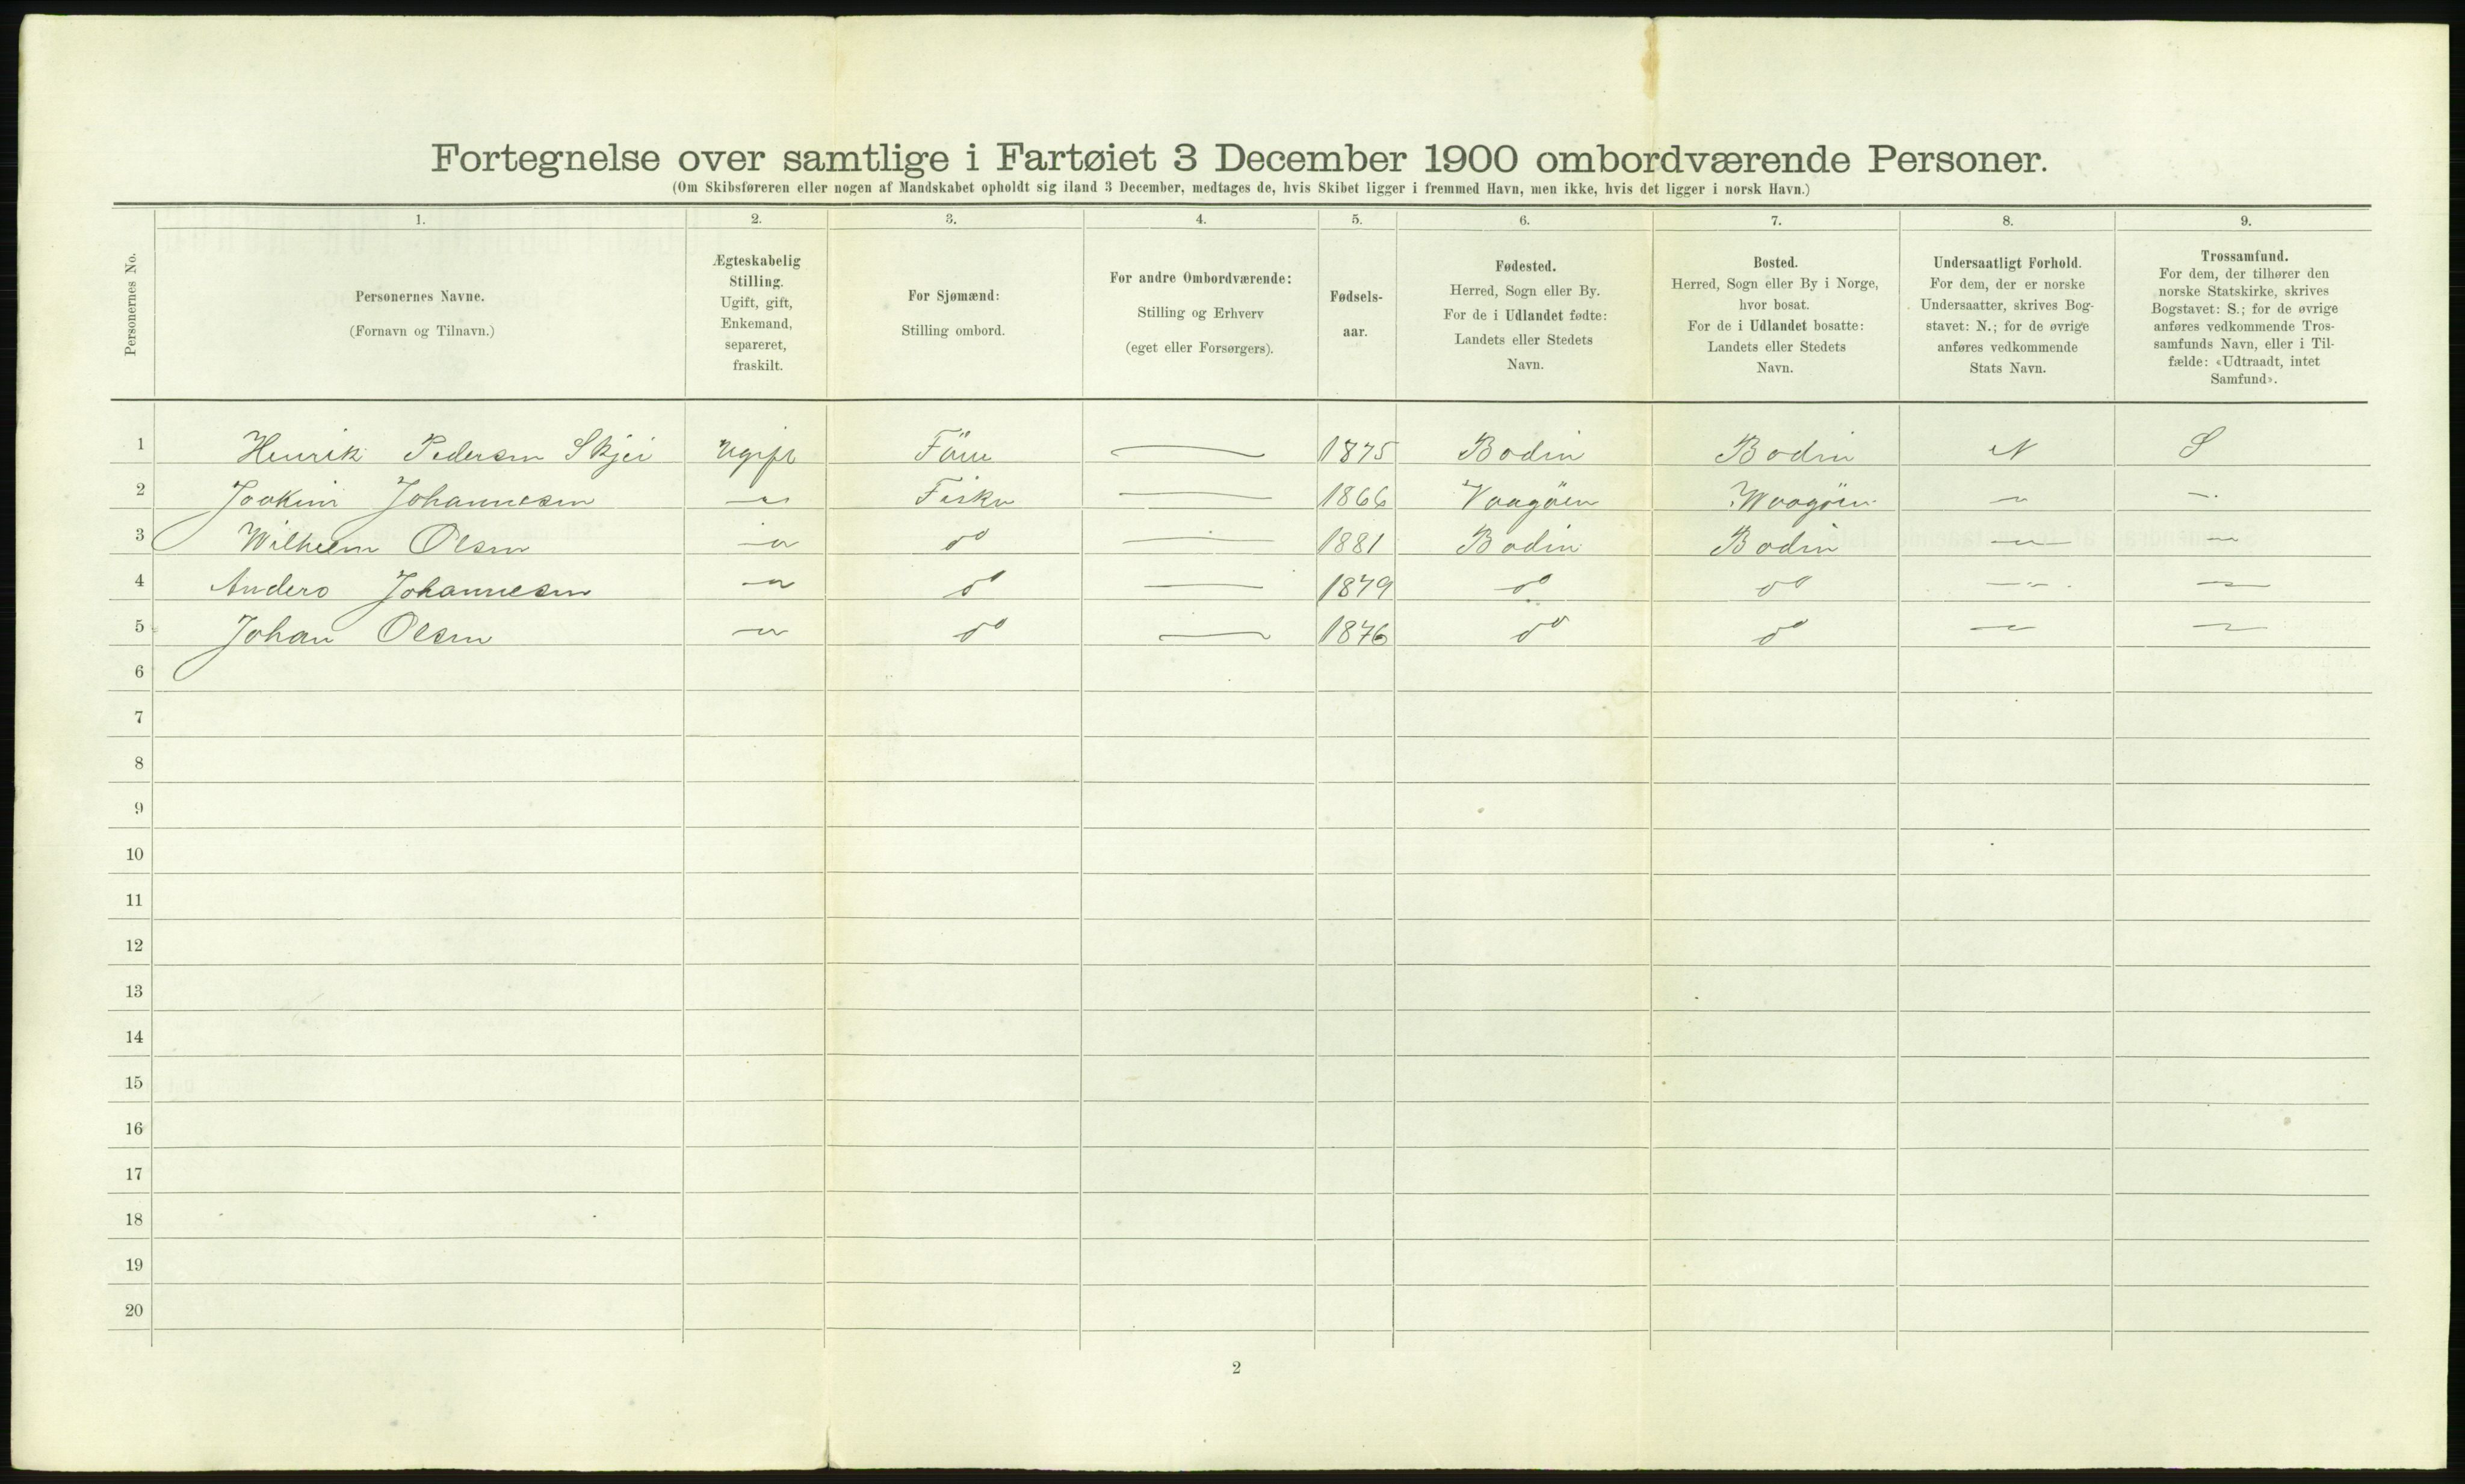 Fortegnelse over samtlige i Fartøiet 3 December 1900 ombordværende Personer.
(Om Skibsføreren eller nogen af Mandskabet opholdt sig iland 3 December, medtages de, hvis Skibet ligger i fremmed Havn, men ikke, hvis det ligger i norsk Havn.)
Personernes No.
1.
Personernes Navne.
(Fornavn og Tilnavn.)
2.
Ægteskabelig
Stilling.
Ugift, gift,
Enkemand,
separeret,
fraskilt.
3.
For Sjømænd:
Stilling ombord.
4.
For andre Ombordværende:
Stilling og Erhverv
(eget eller Forsørgers).
5.
Fødsels-
aar.
6.
Fødested.
Herred, Sogn eller By.
For de i Udlandet fødte:
Landets eller Stedets
Navn.
7.
Bosted.
Herred, Sogn eller By i Norge,
hvor bosat.
For de i Udlandet bosatte:
Landets eller Stedets
Navn.
8.
Undersaatligt Forhold.
For dem, der er norske
Undersaatter, skrives Bog-
stavet: N.; for de øvrige
anføres vedkommende
Stats Navn.
9.
Trossamfund.
For dem, der tilhører den
norske Statskirke, skrives
Bogstavet: S.; for de øvrige
anføres vedkommende Tros-
samfunds Navn, eller i Til-
fælde: «Udtraadt, intet
Samfund».
1 Henrik Pedersen Skjei Ugift — 1875 Bodin Bodin N S
2 Joakim Johannesen —"— Fisker — 1866 Vaagöen Waagöen —"— —"—
3 Wilhelm Olsen —"— do — 1881 Bodin Bodin —"— —"—
4 Anders Johannesen —"— do — 1879 do do —"— —"—
5 Johan Olsen —"— do — 1876 do do —"— —"—
6
7
8
9
10
11
12
13
14
15
16
17
18
19
20
2